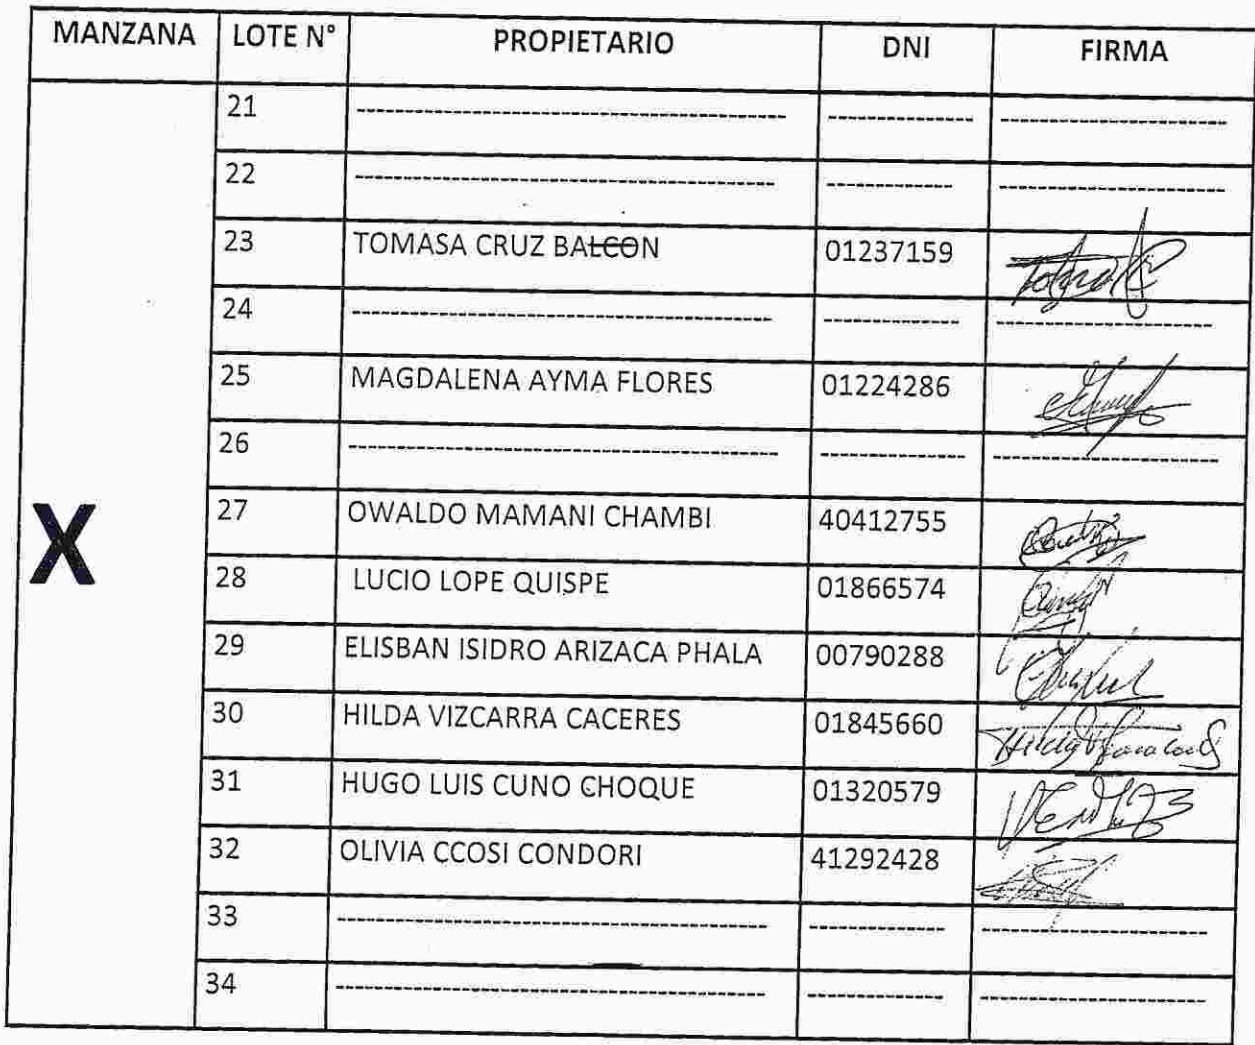 MANZANA LOTE N° PROPIETARIO DNI FIRMA
21 ---------- ---------- ----------
22 ---------- ---------- ----------
23 TOMASA CRUZ BALCON 01237159
24 ---------- ---------- ----------
25 MAGDALENA AYMA FLORES 01224286
26 ---------- ---------- ----------
X
27 OWALDO MAMANI CHAMBI 40412755
28 LUCIO LOPE QUISPE 01866574
29 ELISBAN ISIDRO ARIZACA PHALA 00790288
30 HILDA VIZCARRA CACERES 01845660
31 HUGO LUIS CUNO CHOQUE 01320579
32 OLIVIA CCOSI CONDORI 41292428
33 ---------- ---------- ----------
34 ---------- ---------- ----------